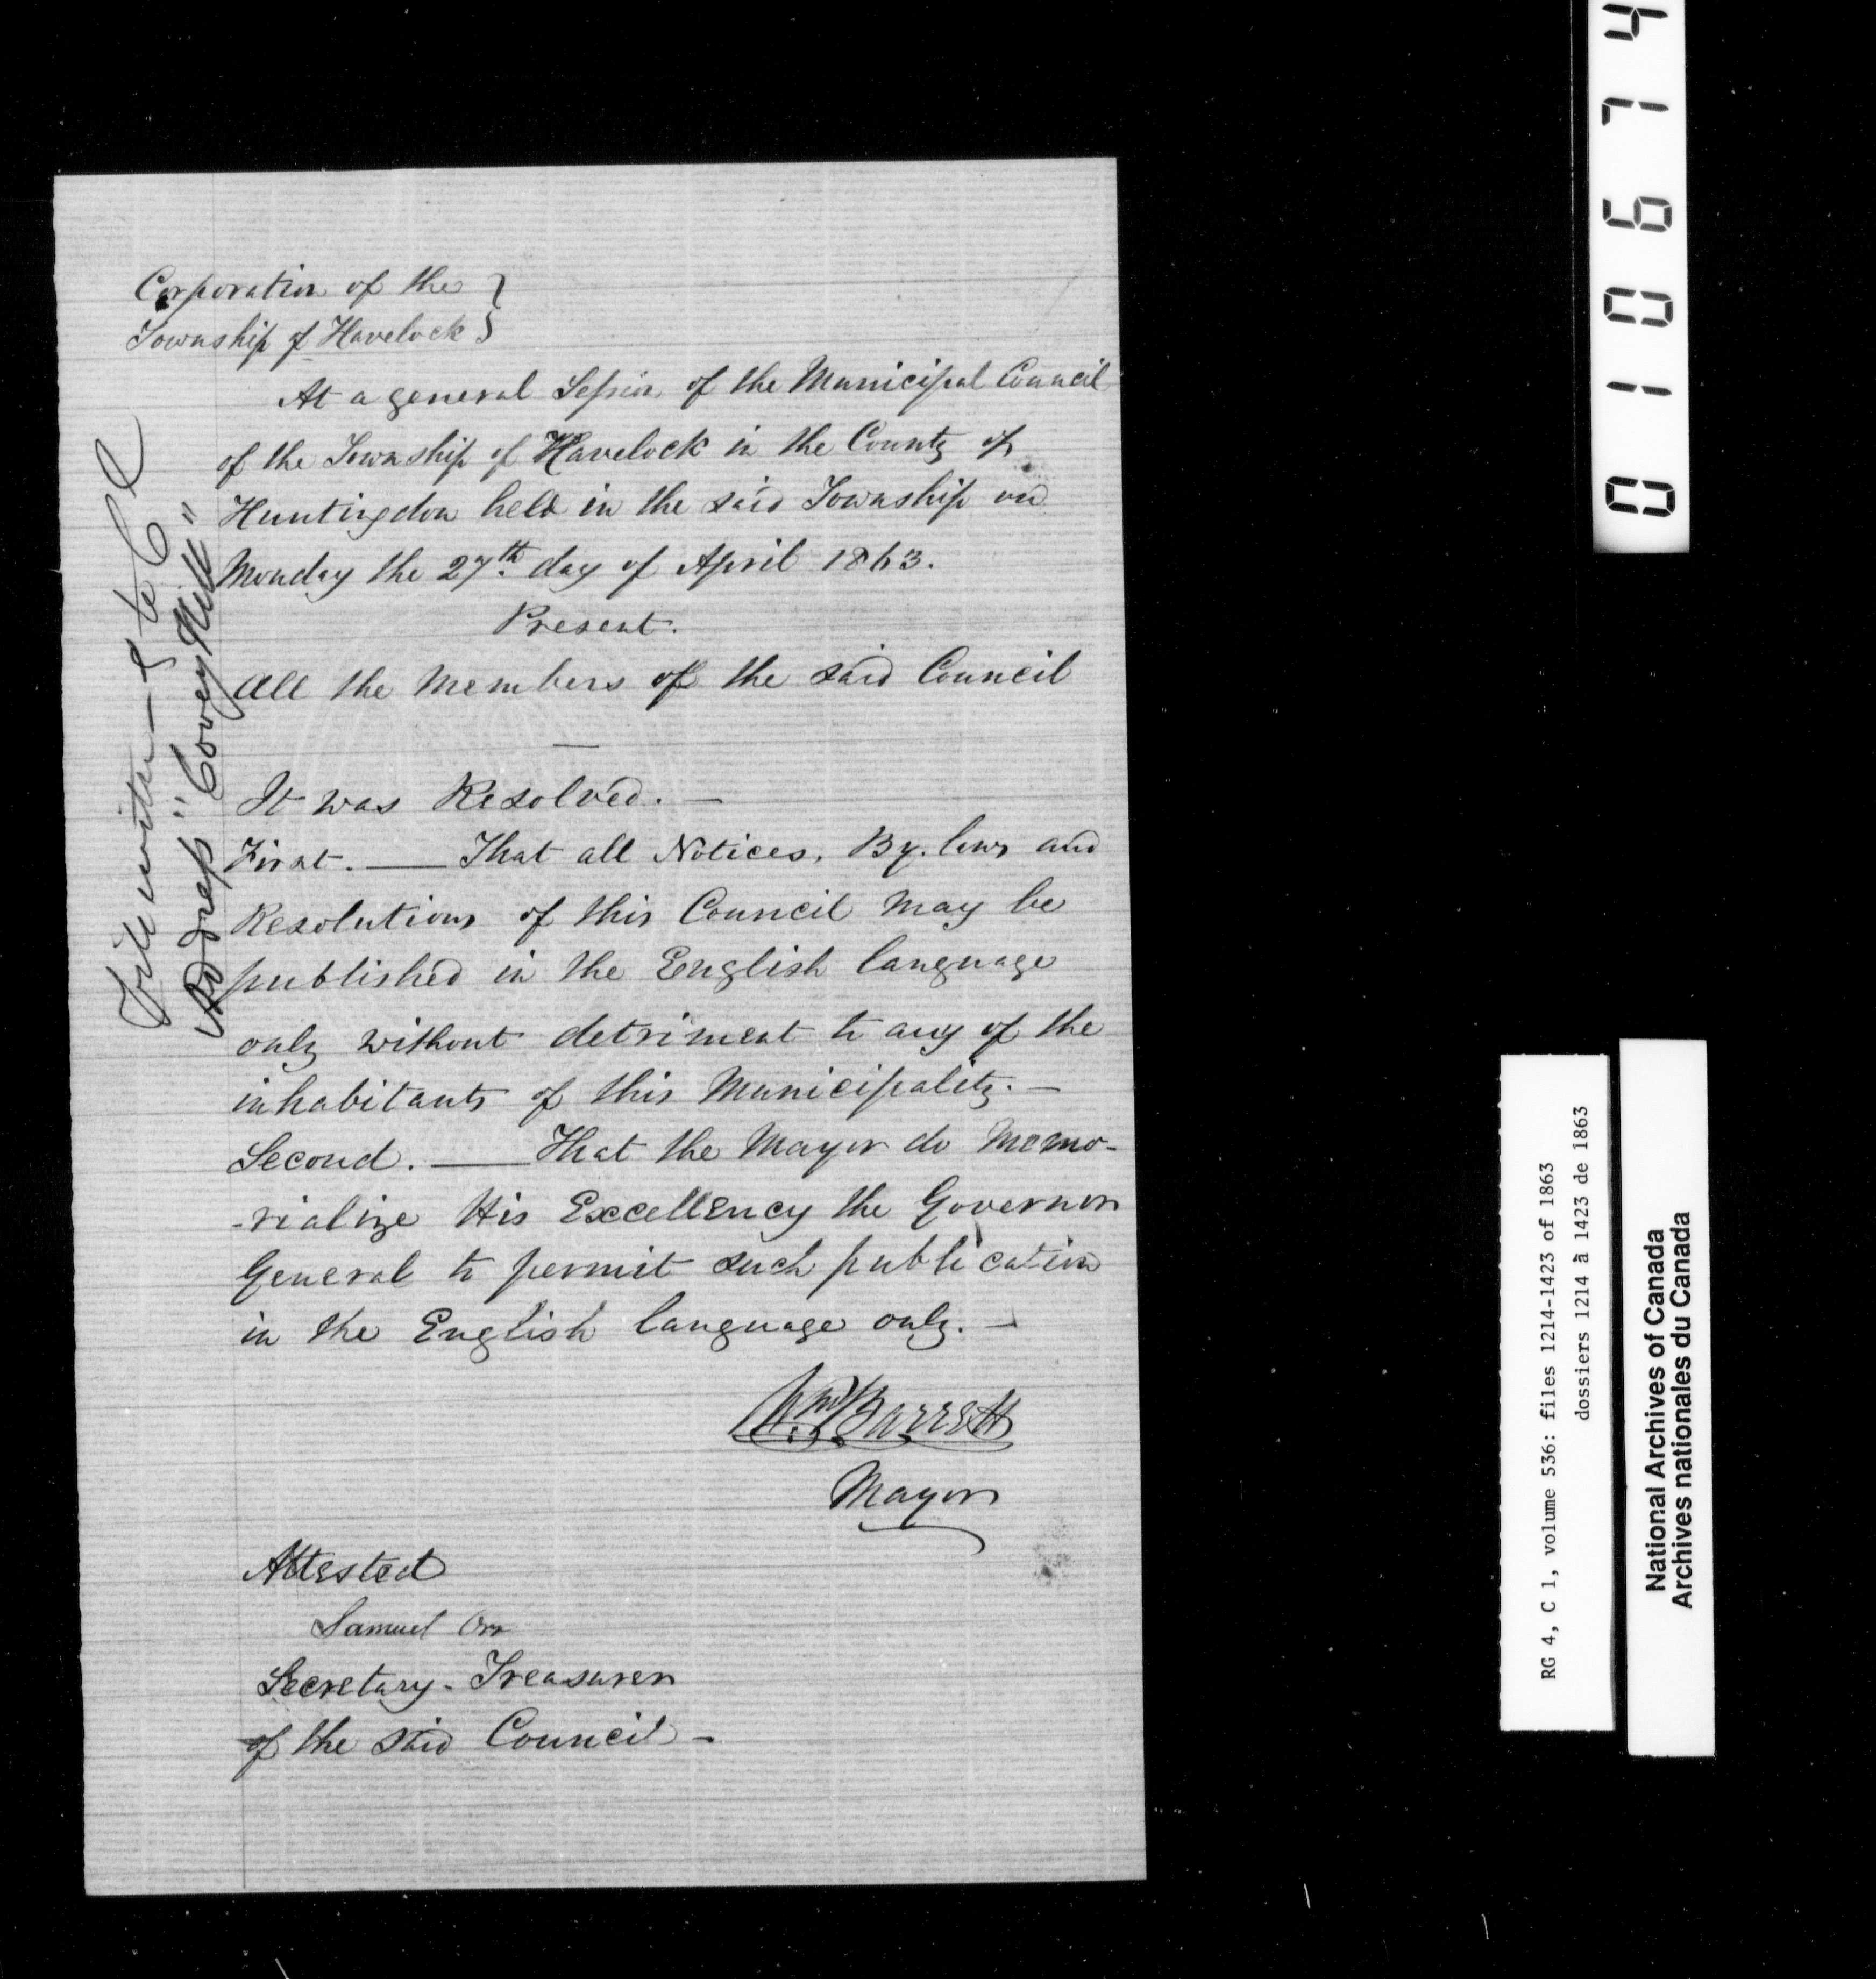 Corporation of the }
Township of Havelock }
At a general Session of the Municipal Council
of the Township of Havelock in the County of
Huntingdon held in the said Township on
Monday the 27th. day of April 1863.
Present.
All the Members of the said Council
—
It was Resolved. —
First. — That all Notices, By. laws and
Resolutions of this Council May be
published in the English language
only without detriment to any of the
inhabitants of this Municipality. —
Second. — That the Mayor do Memo-
-rialize His Excellency the Governor
General to permit such publication
in the English language only. —
Wm Barrett
Mayor
Attested
Samuel Orr
Secretary - Treasurer
of the said Council -
Address "Covey Hill"
010674
RG 4, C 1, volume 536: files 1214-1423 of 1863
dossiers 1214 à 1423 de 1863
National Archives of Canada
Archives nationales du Canada